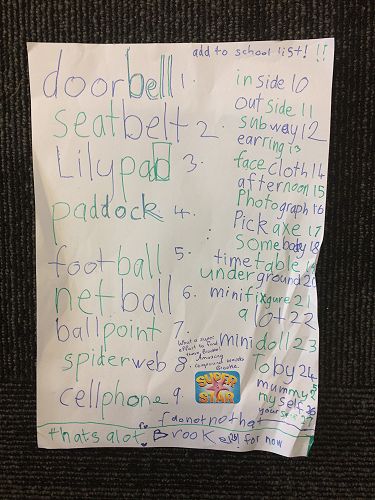 add to school list! !!
doorbell 1.
seatbelt 2.
Lilypad 3.
paddock 4.
football 5.
netball 6.
ballpoint 7.
spiderweb 8.
cellphone 9.
inside 10
outside 11
subway 12
earring 13
facecloth 14
afternoon 15
Photograph 16
Pickaxe 17
Somebody 18
timetable 19
underground 20
minifixgure 21
alot 22
minidoll 23
Toby 24
mummy 25
myself 26
yourself 27
What a super
effort to find
these Brooke!
Amazing
compound words
Brooke.
SUPER
STAR
thats alot
for now